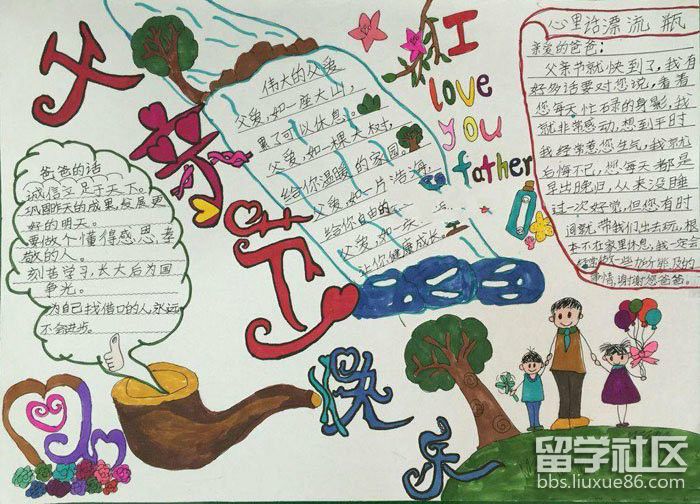 父亲节
快乐
I
love
you
father
伟大的父爱
父爱,如一座大山,
累了可以休息。
父爱,如一棵大树,
给你温暖的家园。
父爱,如一片浩海,
给你自由的
父爱,如一
让你健康成长。
爸爸的话
诚信立足于天下。
巩固昨天的成果,发展更
好的明天。
要做个懂得感恩、孝
敬的人。
刻苦学习,长大后为国
争光。
为自己找借口的人,永远
不会进步。
心里话漂流瓶
亲爱的爸爸:
父亲节就快到了,我有
好多话要对您说,看着
您每天忙碌的身影,我
就非常感动,想到平时
我经常惹您生气,我就
自悔不已,您每天都是
早出晚归,从来没睡
过一次好觉,但您有时
间就带我们出去玩,根
本不在家里休息,我一定会
做一些力所能及的
事情,谢谢您爸爸。
留学社区
bbs.liuxue86.com